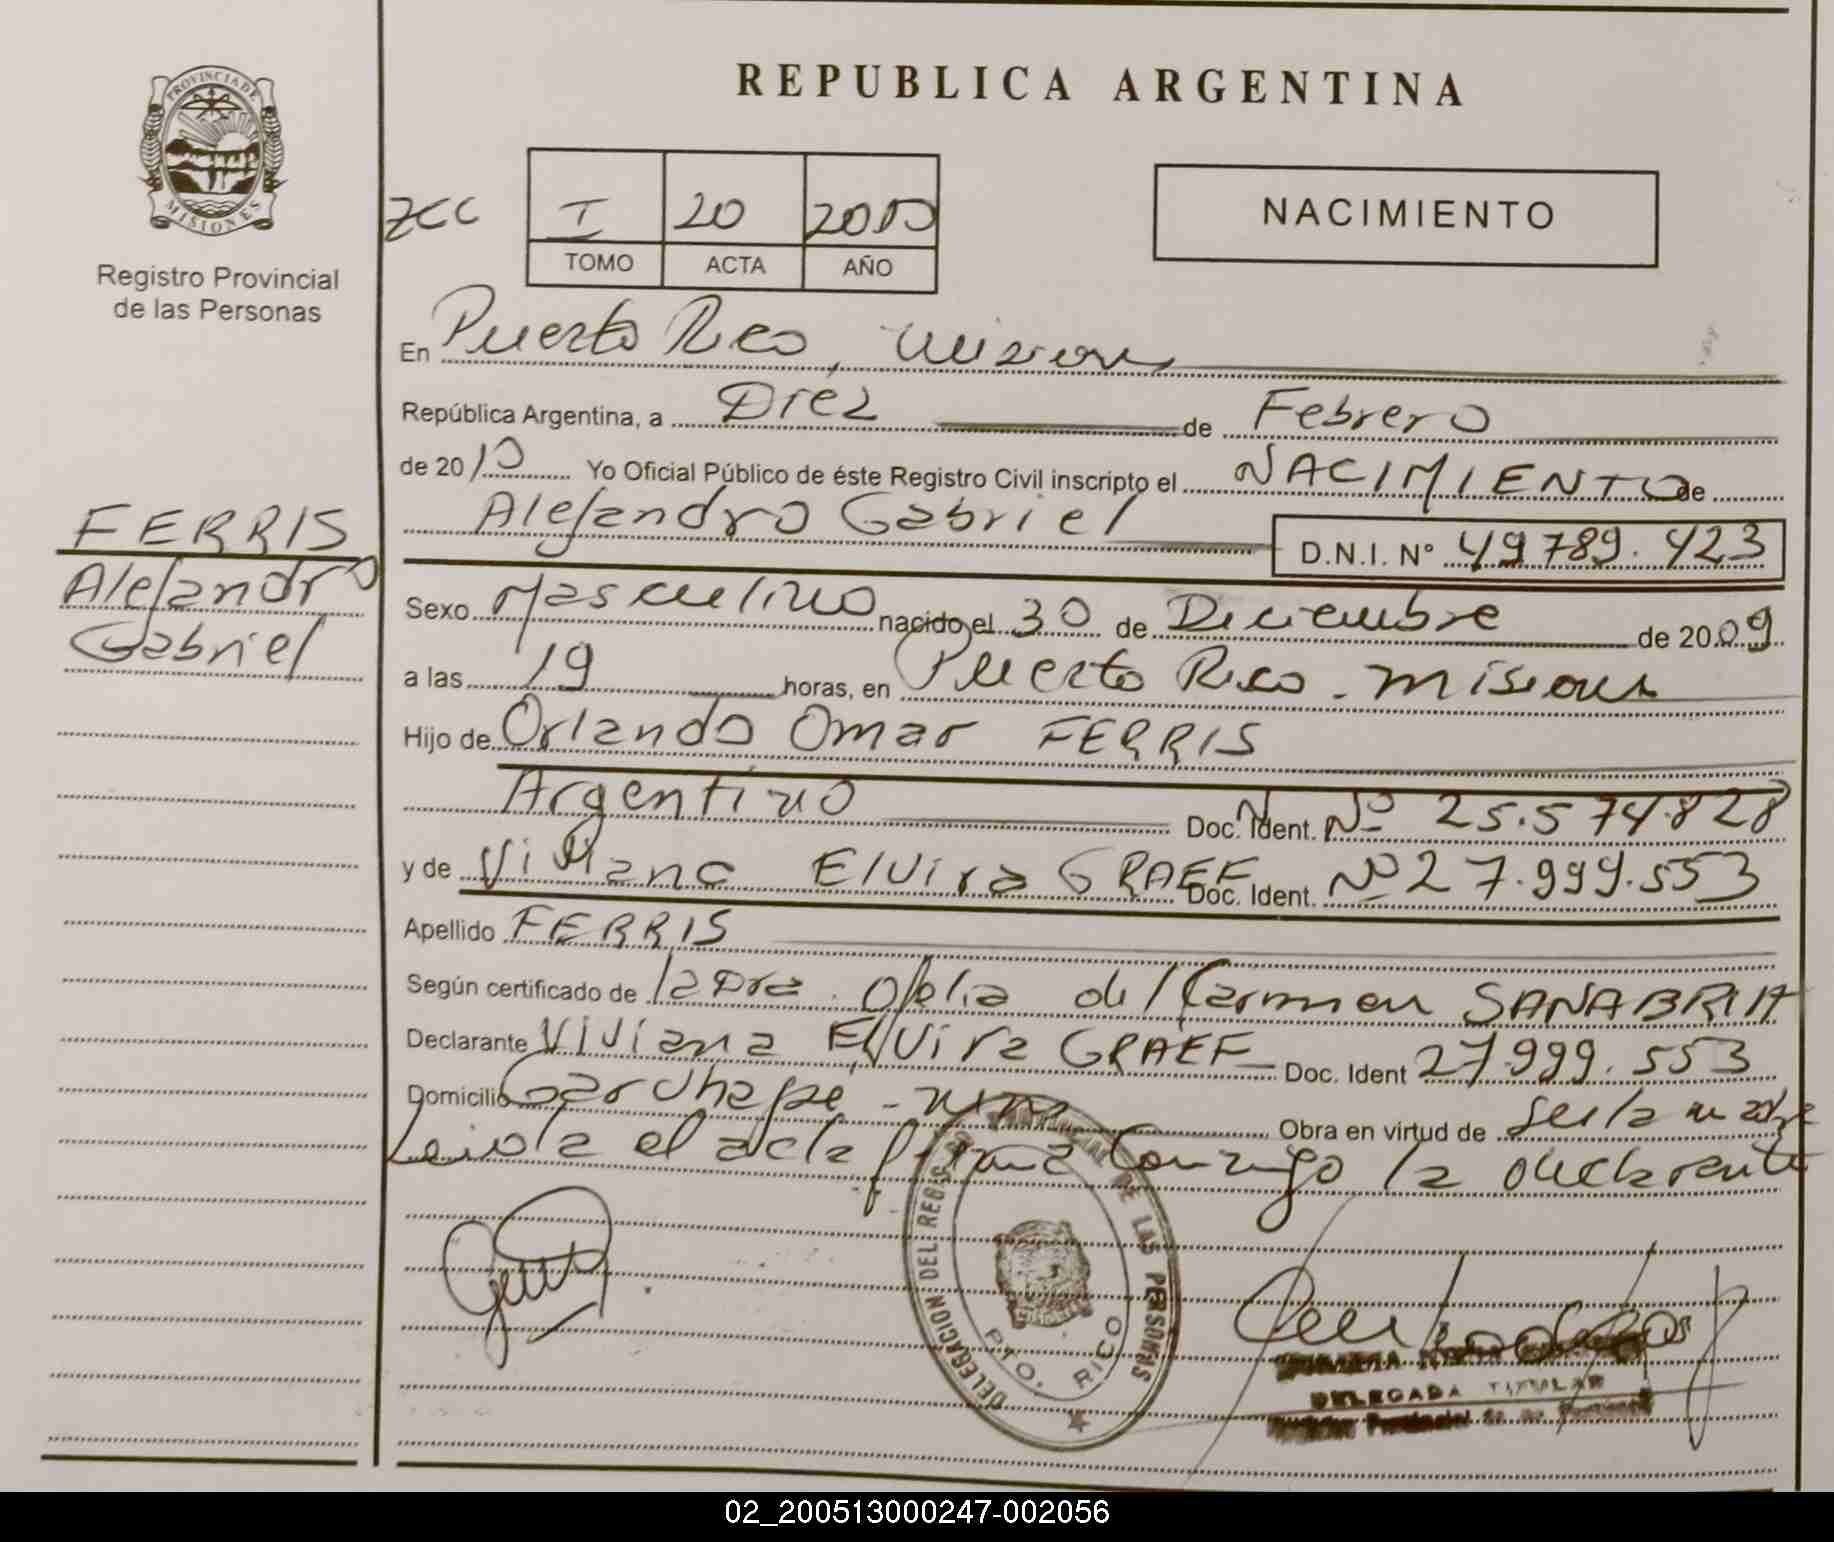 REPUBLICA ARGENTINA
PROVINCIA DE
MISIONES
Registro Provincial
de las Personas
I 20 2010
TOMO ACTA AÑO
NACIMIENTO
En Puerto Rico, Misiones
República Argentina, a Diez de Febrero
de 2010 Yo Oficial Público de éste Registro Civil inscripto el NACIMIENTO de
Alejandro Gabriel D.N.I. Nº 49789.423
FERRIS
Alejandro
Gabriel
Sexo Masculino nacido el 30 de Diciembre de 2009
a las 19 horas, en Puerto Rico - Misiones
Hijo de Orlando Omar FERRIS
Argentino Doc. Ident. Nº 25.574.828
y de Viviana Elvira GRAEF Doc. Ident. Nº 27.999.553
Apellido FERRIS
Según certificado de la Dra. Ofelia del Carmen SANABRIA
Declarante Viviana Elvira GRAEF Doc. Ident 27.999.553
Domicilio Garuhape - Obra en virtud de ser la madre
Leida el acta firma conmigo la declarante
DELEGACION DEL REGISTRO PROVINCIAL DE LAS PERSONAS
PTO. RICO
DELEGADA TITULAR
02_200513000247-002056